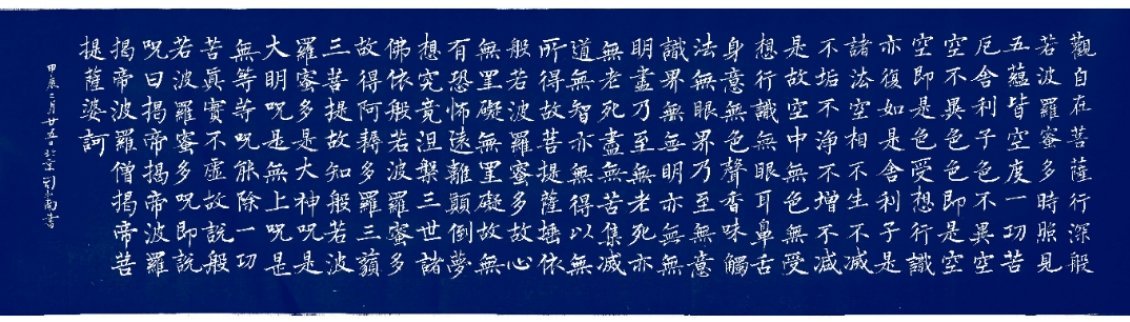 觀自在菩薩行深般
若波羅蜜多時照見
五蘊皆空度一切苦
厄舍利子色不異空
空不異色色即是空
空即是色受想行識
亦復如是舍利子是
諸法空相不生不滅
不垢不淨不增不減
是故空中無色無受
想行識無眼耳鼻舌
身意無色聲香味觸
法無眼界乃至無意
識界無無明亦無無
明盡乃至無老死亦
無老死盡無苦集滅
道無智亦無得以無
所得故菩提薩埵依
般若波羅蜜多故心
無罣礙無罣礙故無
有恐怖遠離顛倒夢
想究竟涅槃三世諸
佛依般若波羅蜜多
故得阿耨多羅三藐
三菩提故知般若波
羅蜜多是大神呪是
大明呪是無上呪是
無等等呪能除一切
苦眞實不虛故說般
若波羅蜜多呪即說
呪曰揭帝揭帝波羅
揭帝波羅僧揭帝菩
提薩婆訶
甲辰二月廿五日於京司南書